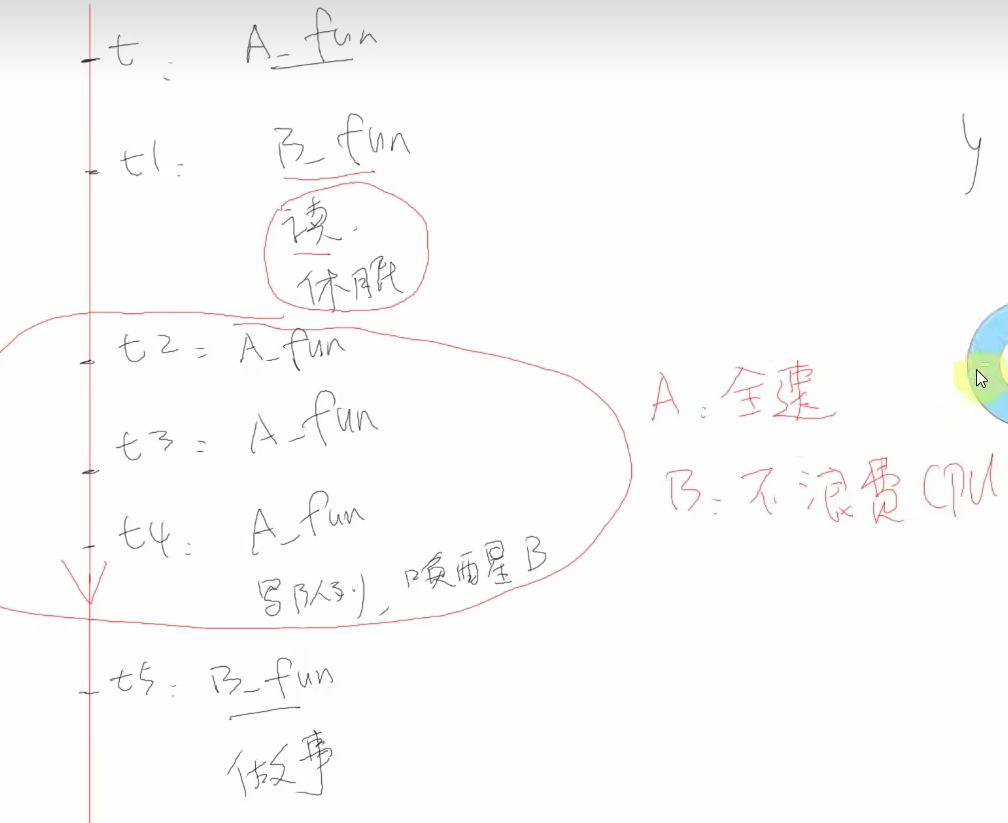 t: A_fun
t1: B_fun
读.
休眠
t2: A_fun
t3: A_fun
t4: A_fun
写队列, 唤醒B
t5: B_fun
做事
A: 全速
B: 不浪费CPU
y